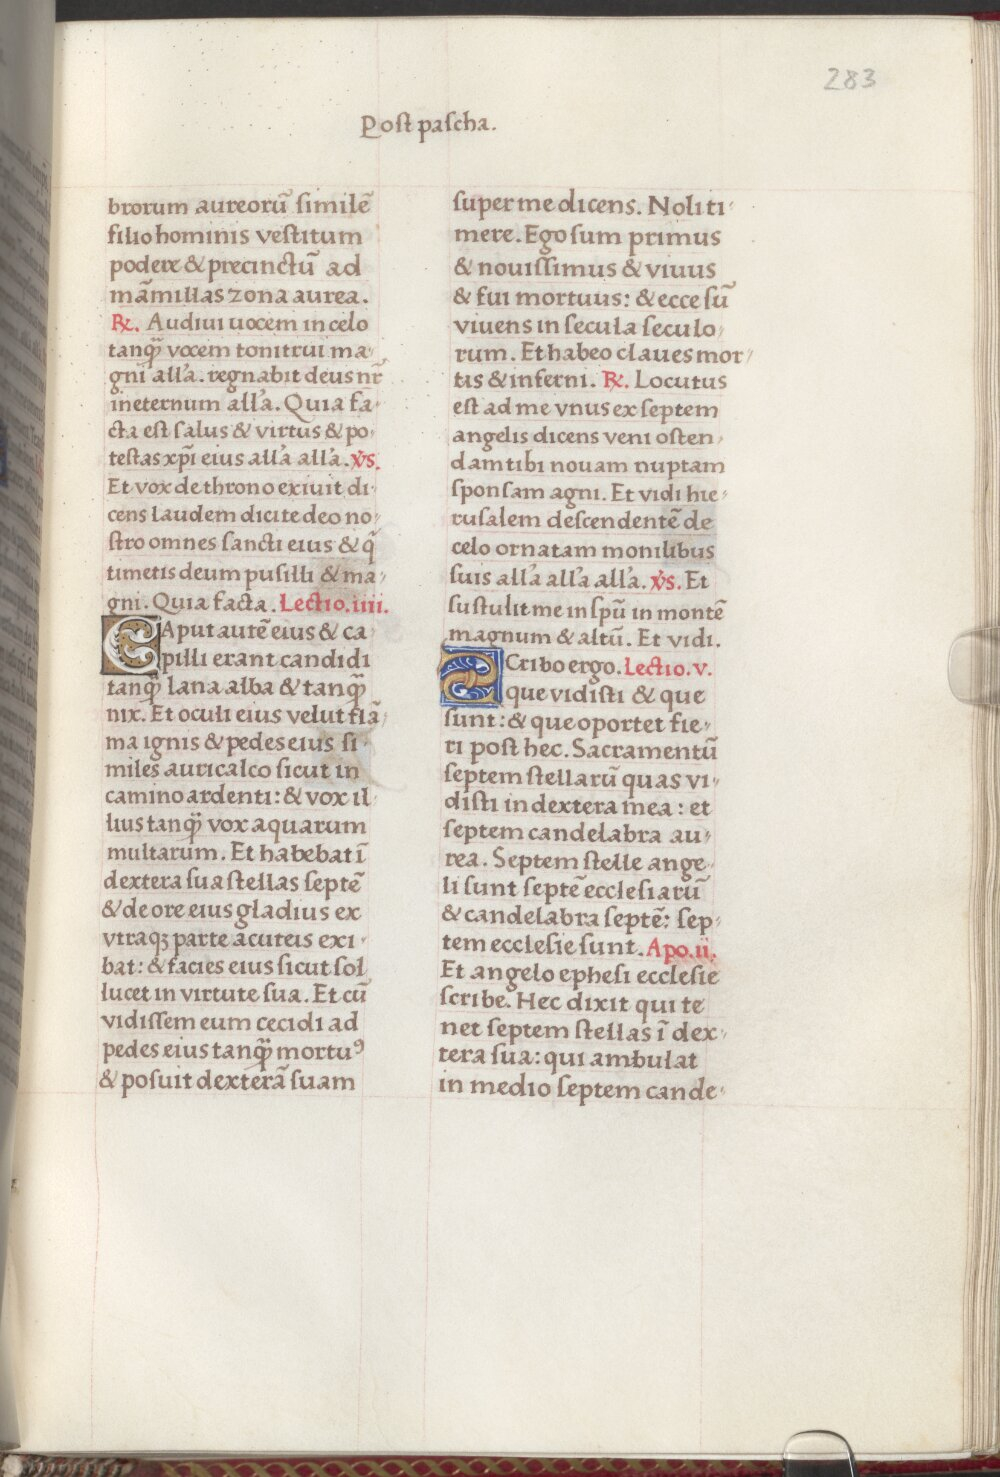 283
Post pascha.
brorum aureorū similē
filio hominis vestitum
podere & precinctū ad
māmillas zona aurea.
℞. Audiui uocem in celo
tanq̄ vocem tonitrui ma-
gni all'a. regnabit deus nr̄
ineternum all'a. Quia fa-
cta est salus & virtus & po-
testas xp̄i eius all'a all'a. v̄s.
Et vox de throno exiuit di-
cens laudem dicite deo no-
stro omnes sancti eius & q̄
timetis deum pusilli & ma-
gni. Quia facta. Lectio.iiii.
CAput autē eius & ca-
pilli erant candidi
tanq̄ lana alba & tanq̄
nix. Et oculi eius velut flā-
ma ignis & pedes eius si-
miles auricalco sicut in
camino ardenti: & vox il-
lius tanq̄ vox aquarum
multarum. Et habebat ī
dextera sua stellas septē
& de ore eius gladius ex
vtraqꝫ parte acuteis exi-
bat: & facies eius sicut sol
lucet in virtute sua. Et cū
vidissem eum cecidi ad
pedes eius tanq̄ mortuꝰ
& posuit dexterā suam
super me dicens. Noli ti-
mere. Ego sum primus
& nouissimus & viuus
& fui mortuus: & ecce sū
viuens in secula seculo-
rum. Et habeo claues mor-
tis & inferni. ℞. Locutus
est ad me vnus ex septem
angelis dicens veni osten-
dam tibi nouam nuptam
sponsam agni. Et vidi hie-
rusalem descendentē de
celo ornatam monilibus
suis all'a all'a all'a. v̄s. Et
sustulit me in spū in montē
magnum & altū. Et vidi.
SCribo ergo. Lectio.v.
que vidisti & que
sunt: & que oportet fie-
ri post hec. Sacramentū
septem stellarū quas vi-
disti in dextera mea: et
septem candelabra au-
rea. Septem stelle ange-
li sunt septē ecclesiarū
& candelabra septē: sep-
tem ecclesie sunt. Apo.ii.
Et angelo ephesi ecclesie
scribe. Hec dixit qui te
net septem stellas ī dex-
tera sua: qui ambulat
in medio septem cande-